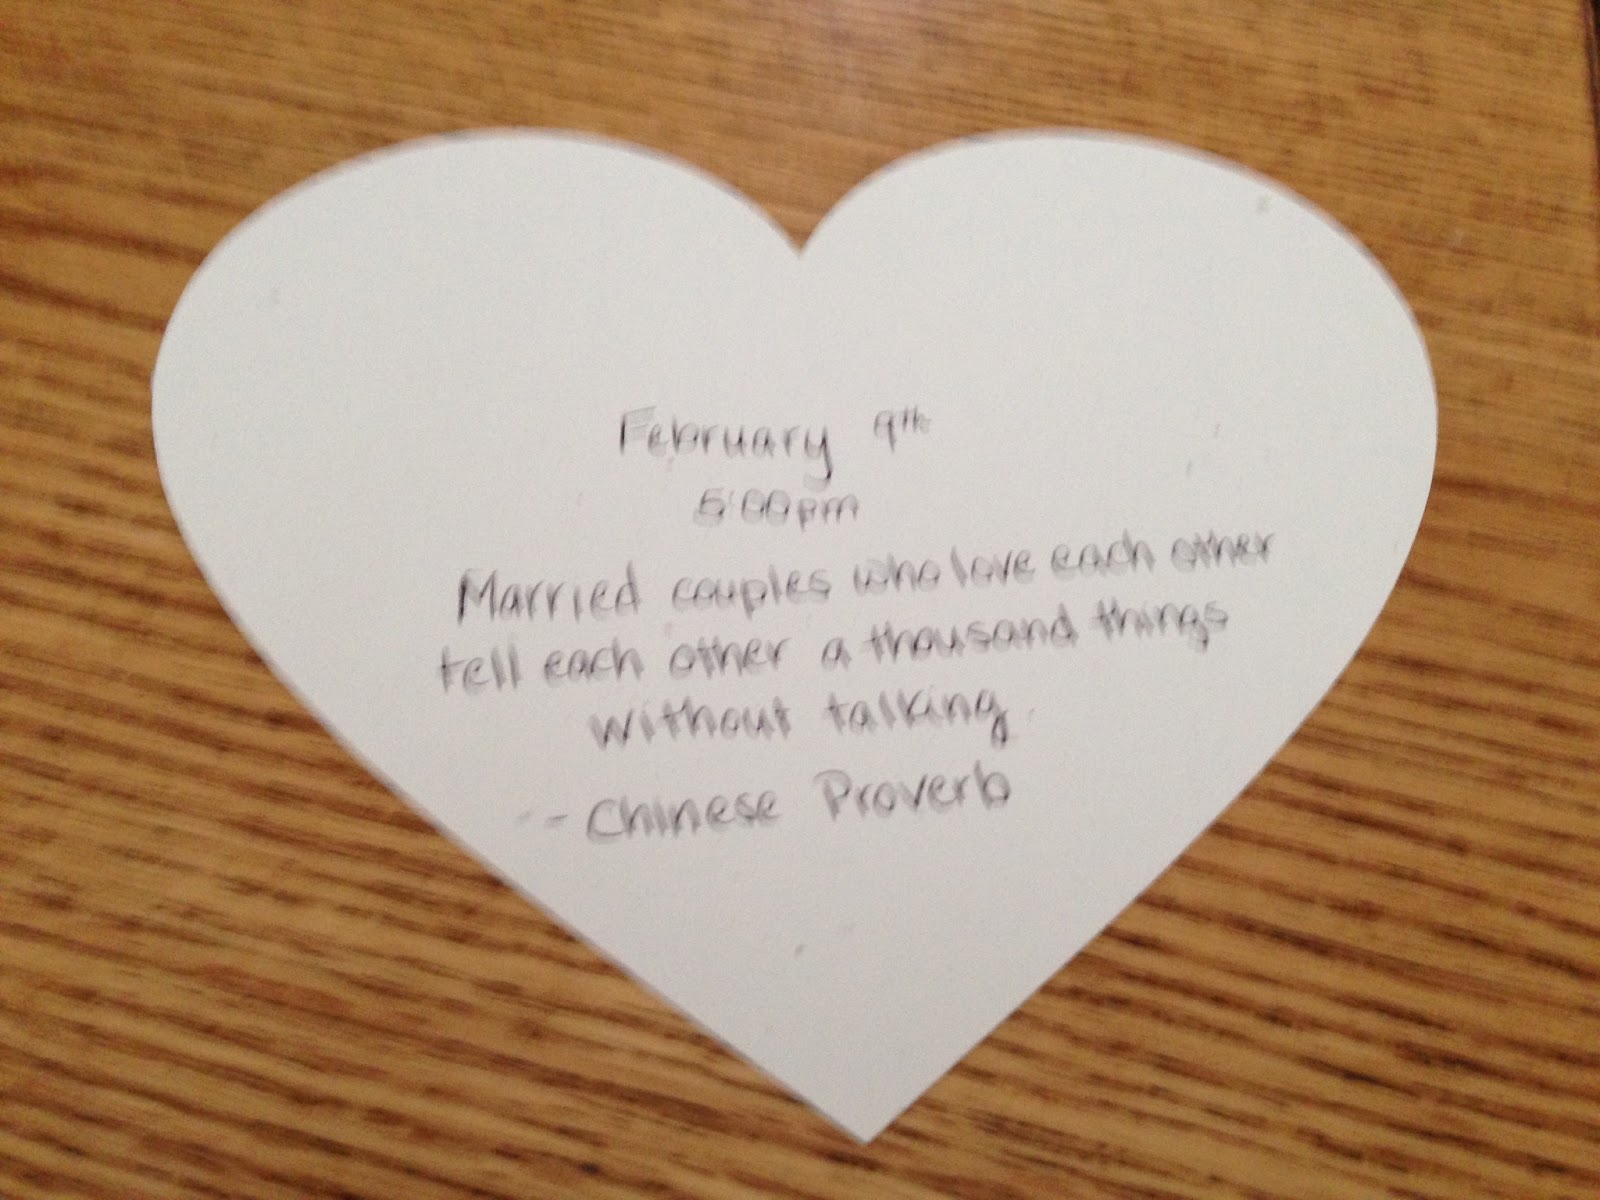 February 9th
5:00pm
Married couples who love each other
tell each other a thousand things
without talking.
-- Chinese Proverb